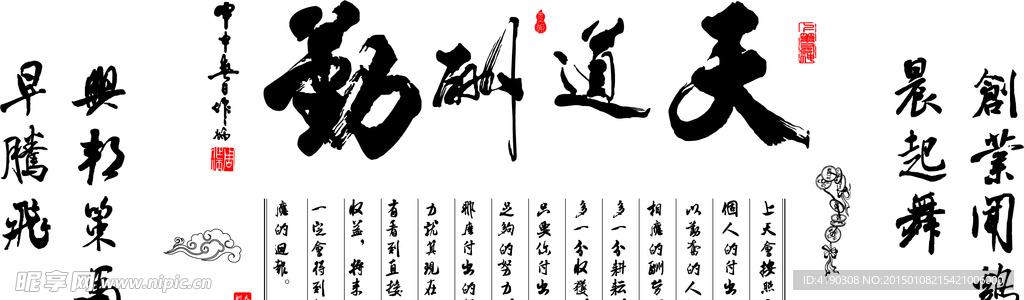 創業聞雞
晨起舞
天道酬勤
上天會按照
個人的付出
以勤奮的人
相應的酬勞
多一分耕耘
多一分收獲
只要你付出
足夠的努力
付出的
力就現在
看到直接
收益，將來
一定會得到
應的回報。
興邦策馬
早騰飛
昵享网 www.nipic.cn
ID:4190308 NO:20150108215421006000